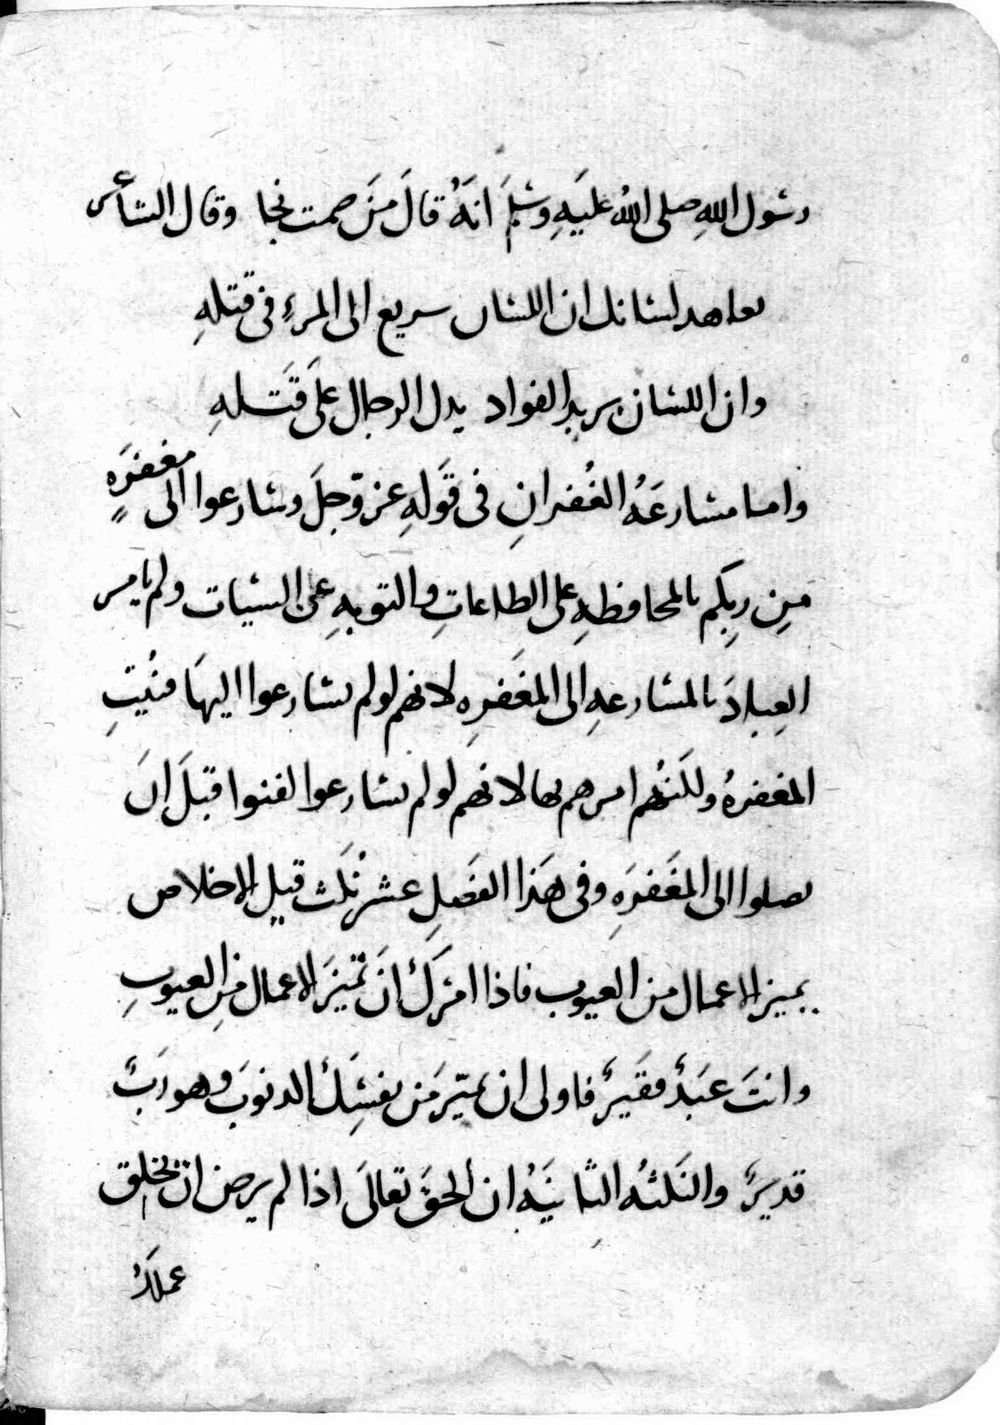 رسول اللهِ صلى الله عليهِ وسلمَ انهُ قالَ منَ صمت نجا وقال الشاعر
تعاهد لسانك ان اللسان سريع الى المرءِ فى قتلهِ
وان اللسان بريد الفواد يدل الرجال علىَ قَتلهِ
واما مسارعَهُ الغُفرانِ فى قَولهِ عز وّجلَ وسارعوا الى مغفرَهٍ
مِن ربِكم بالمحافظهِ على الطاعاتِ والتوبهِ عن السيات ولم يامر
العِبادَ بالمسارعهِ الى المغَفرِه لانهم لو لم يسارعوا اليهَا فنُيتِ
المغفرهُ ولكَنهُم امرهم بها لانهم لو لم يسارعوا لفنوا قبلَ انَ
يصلوا الى المغَفرَهِ وفى هَذا الفَصلِ عشر نُكَث قيل الاخلاص
تمييز الاعمال من العيوب فاذا امَركَ انَ تميزَ الاعمال مِن العيوبِ
وانتَ عَبدٌ فقَيرٌ فاولى ان يميّزَ من نفسِكَ الذنوبَ وهو رَبٌ
قديرٌ والنكَثهُ الثانيَهُ ان الحقَ تعالىَ اذا لم يرض ان يخلق
عملكَ